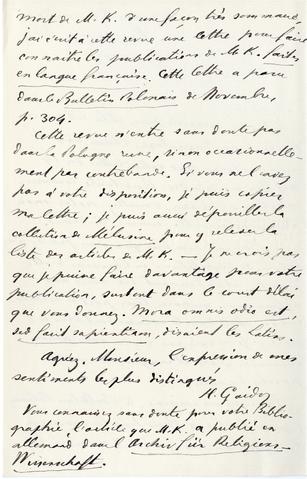 mort de M. K. d'une façon très sommaire,
j'ai écrit à cette revue une lettre pour faire
connaître les publications de M. K. faites
en langue française. Cette lettre a paru
dans le Bulletin Polonais de Novembre,
p. 304.
Cette revue n'entre sans doute pas
dans la Pologne russe, sinon occasionnelle-
ment par contrebande. Si vous ne l'avez
pas à votre disposition, je puis copier
ma lettre ; je puis aussi dépouiller la
collection de Mélusine, pour y relever la
liste des articles de M. K. — Je ne crois pas
que je puisse faire davantage pour votre
publication, surtout dans le court délai
que vous donnez. Mora omnis odio est,
sed facit sapientiam, disaient les Latins.
Agréez, Monsieur, l'expression de mes
sentiments les plus distingués
H. Gaidoz
Vous connaissez sans doute pour votre Biblio-
graphie l'article que M. K. a publié en
allemand dans l'Archiv für Religions-
Wissenschaft.